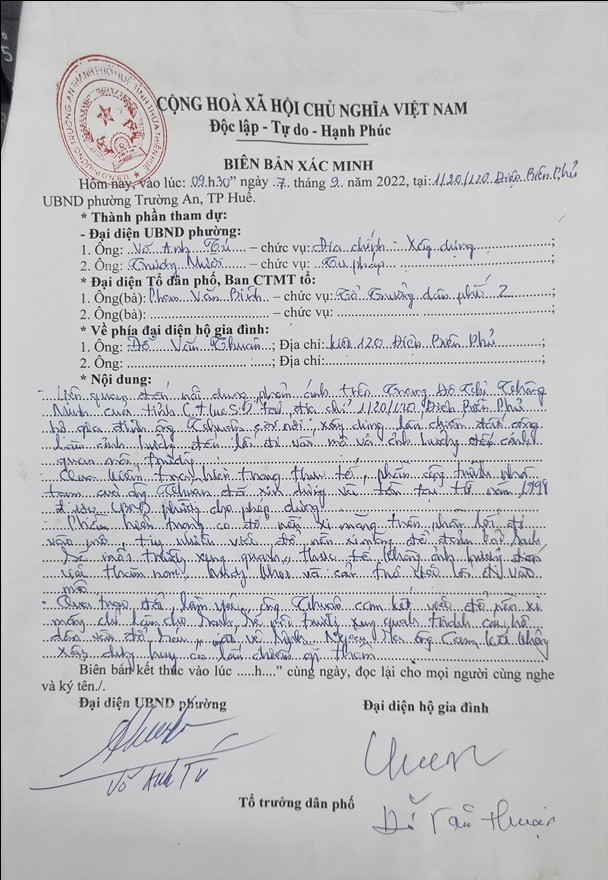 CỘNG HOÀ XÃ HỘI CHỦ NGHĨA VIỆT NAM
Độc lập - Tự do - Hạnh Phúc
BIÊN BẢN XÁC MINH
Hôm nay, vào lúc: 09.h30" ngày .7. tháng .9. năm 2022, tại: 1/20/120 Điện Biên Phủ
UBND phường Trường An, TP Huế.
* Thành phần tham dự:
- Đại diện UBND phường:
1. Ông: Võ Anh Tú – chức vụ: Địa chính - Xây dựng ;
2. Ông: Trương Mười – chức vụ: Tư pháp ;
* Đại diện Tổ dân phố, Ban CTMT tổ:
1. Ông(bà): Phạm Văn Bình – chức vụ: Tổ Trưởng dân phố 2
2. Ông(bà): – chức vụ: ;
* Về phía đại diện hộ gia đình:
1. Ông: Đỗ Văn Thuận ; Địa chỉ: 120 Điện Biên Phủ
2. Ông: ; Địa chỉ: ;
* Nội dung:
- Liên quan đến nội dung phản ánh trên Trang Đô Thị Thông
Minh của tỉnh tại địa chỉ 1/20/120 Điện Biên Phủ
hộ gia đình ông Thuận xây dựng lấn chiếm đất công
làm ảnh hưởng đến lối đi vào mộ và ảnh hưởng đến cảnh
quan môi trường.
- Qua kiểm tra hiện trạng thực tế, phần công trình
của ông Thuận đã xây dựng và tồn tại từ năm 1998
được UBND phường cho phép dựng.
- Phần hiện trạng có đổ nền xi măng trên phần lối đi
vào mộ, tuy nhiên việc đổ nền xi măng để đảm bảo sạch
sẽ môi trường xung quanh, thực tế không ảnh hưởng đến
việc và lối đi vào
mộ.
- Qua trao đổi, làm việc, ông Thuận cam kết việc đổ nền xi
măng chỉ làm cho sạch sẽ môi trường xung quanh tránh
Ngoài ra ông Cam kết không
xây dựng hay có lấn chiếm gì thêm
Biên bản kết thúc vào lúc .....h....” cùng ngày, đọc lại cho mọi người cùng nghe
và ký tên./.
Đại diện UBND phường Đại diện hộ gia đình
Võ Anh Tú
Thuận
Tổ trưởng dân phố
Đỗ Văn Thuận